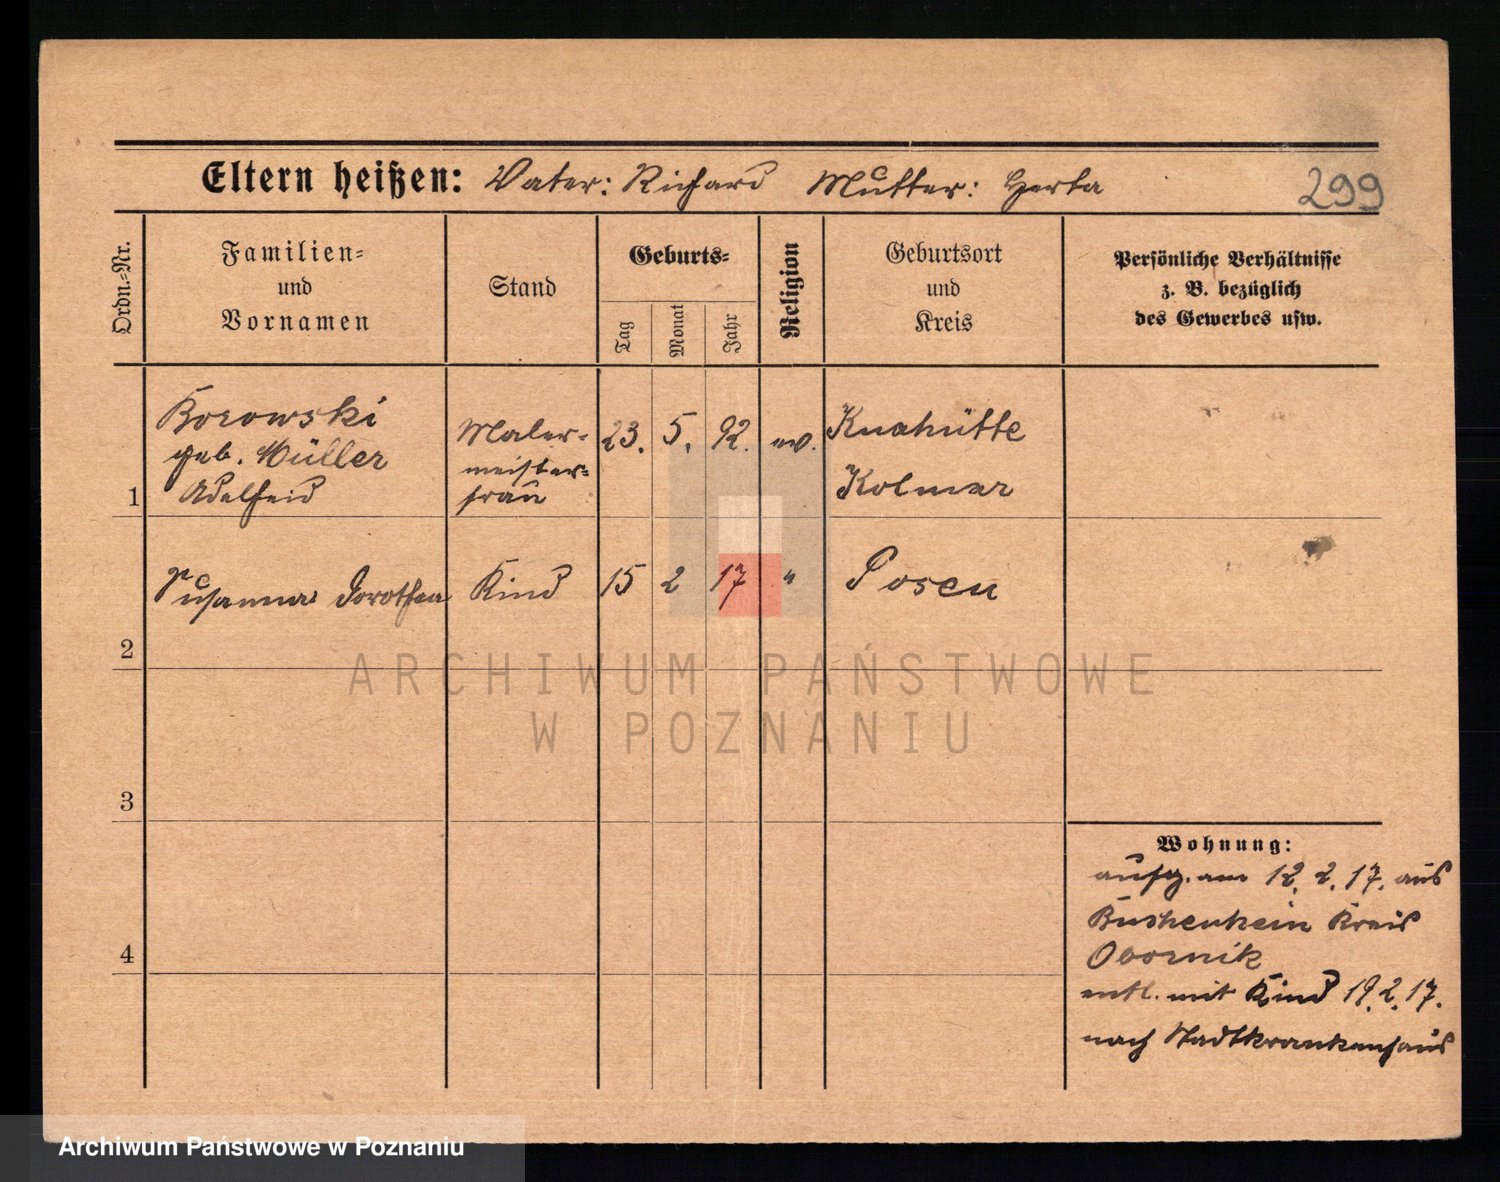 Eltern heißen: Vater: Richard Mutter: Herta
299
Ordn.-Nr.
Familien-
und
Vornamen
Stand
Geburts-
Tag
Monat
Jahr
Religion
Geburtsort
und
Kreis
Persönliche Verhältnisse
z. B. bezüglich
des Gewerbes usw.
1
Borowski
geb. Müller
Adelheid
Maler-
meister-
frau
23. 5. 92. ev.
Kolmar
2
Susanna Dorothea Kind 15 2 17 " Posen
ARCHIWUM PAŃSTWOWE
W POZNANIU
3
4
Wohnung:
aufg. am 12. 2. 17. aus
Kreis
Obornik
entl. mit Kind 19. 2. 17.
nach Stadtkrankenhaus
Archiwum Państwowe w Poznaniu